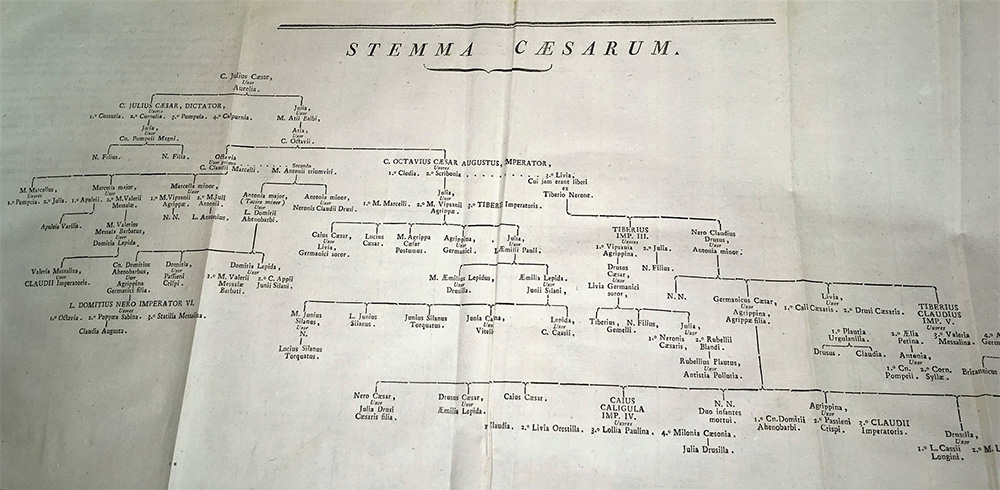 STEMMA CÆSARUM.
C. Julius Cæsar,
Uxor
Aurelia.
C. JULIUS CÆSAR, DICTATOR,
Uxores
1.º Cossutia. 2.º Cornelia. 3.º Pompeia. 4.º Calpurnia.
Julia,
Uxor
M. Atii Balbi.
Julia,
Uxor
Cn. Pompeii Magni.
Atia,
Uxor
C. Octavii.
N. Filius. N. Filia.
Octavia
Uxor Primum
C. Claudii Marcelli.
Secundo
M. Antonii triumviri.
C. OCTAVIUS CÆSAR AUGUSTUS, IMPERATOR,
Uxores
1.º Clodia. 2.º Scribonia
3.º Livia,
Cui jam erant liberi
ex
Tiberio Nerone.
M. Marcellus,
Uxores
1.º Pompeia. 2.º Julia.
Marcella major,
Uxor
1.º Apuleii. 2.º M. Valerii
Messalæ.
Marcella minor,
Uxor
1.º M. Vipsanii 2.º M. Julii
Agrippæ. Antonii.
Antonia major,
(Tacito minor)
Uxor
L. Domitii
Ahenobarbi.
Antonia minor,
Uxor
Neronis Claudii Drusi.
Julia,
Uxor
1.º M. Marcelli. 2.º M. Vipsanii 3.º TIBERII Imperatoris.
Agrippæ.
Apuleia Varilla.
M. Valerius
Messala Barbatus,
Uxor
Domitia Lepida.
N. N. L. Antonius.
Caius Cæsar,
Uxor
Livia,
Germanici soror.
Lucius
Cæsar.
M. Agrippa
Cæsar
Postumus.
Agrippina,
Uxor
Germanici.
Julia,
Uxor
L. Æmilii Pauli.
TIBERIUS
IMP. III.
Uxores
1.º Vipsania 2.º Julia.
Agrippina.
Nero Claudius
Drusus,
Uxor
Antonia minor.
Drusus
Cæsar,
Uxor
Livia Germanici
soror.
N. Filius.
Valeria Messalina,
Uxor
CLAUDII Imperatoris.
Cn. Domitius
Ahenobarbus,
Uxor
Agrippina
Germanici filia.
Domitia,
Uxor
Passieni
Crispi.
Domitia Lepida,
Uxor
1.º M. Valerii 2.º C. Appii
Messalæ Junii Silani.
Barbati.
M. Æmilius Lepidus,
Uxor
Drusilla.
Æmilia Lepida,
Uxor
Junii Silani.
N. N.
Germanicus Cæsar,
Uxor
Agrippina
Agrippæ filia.
Livia,
Uxor
1.º Caii Cæsaris. 2.º Drusi Cæsaris.
TIBERIUS
CLAUDIUS
IMP. V.
Uxores
1.º Plautia 2.º Ælia 3.º Valeria
Urgulanilla. Petina. Messalina.
L. DOMITIUS NERO IMPERATOR VI.
Uxores
1.º Octavia. 2.º Poppæa Sabina. 3.º Statilia Messalina.
Claudia Augusta.
M. Junius
Silanus,
Uxor
N.
L. Junius
Silanus.
Junius Silanus
Torquatus.
Junia
Uxor
Lepida,
Uxor
C. Cassii.
Tiberius, N. Filius,
Gemelli.
Julia,
Uxor
1.º Neronis 2.º Rubellii
Cæsaris. Blandi.
Lucius Silanus
Torquatus.
Rubellius Plautus,
Uxor
Antistia Pollutia.
Drusus. Claudia.
Antonia,
Uxor
1.º Cn. 2.º Corn.
Pompeii. Syllæ.
Britannicus
Nero Cæsar,
Uxor
Julia Drusi
Cæsaris filia
Drusus Cæsar,
Uxor
Æmilia Lepida.
Caius Cæsar.
CAIUS
CALIGULA
IMP. IV.
Uxores
Claudia. 2.º Livia Orestilla. 3.º Lollia Paulina. 4.º Milonia Cæsonia.
Julia Drusilla.
N. N.
Duo infantes
mortui.
Agrippina,
Uxor
1.º Cn. Domitii 2.º Passieni 3.º CLAUDII
Ahenobarbi. Crispi. Imperatoris.
Drusilla,
Uxor
1.º L. Cassii 2.º M. L
Longini.